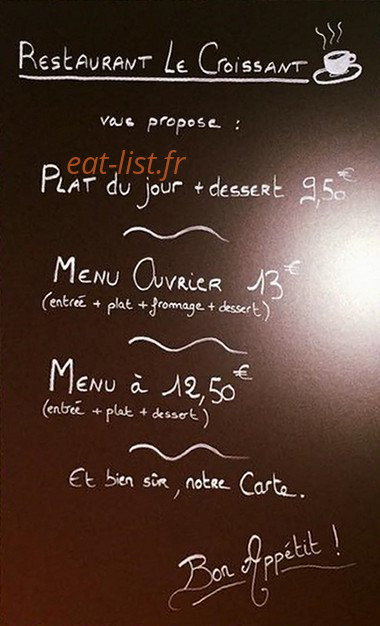 Restaurant Le Croissant
vous propose :
eat-list.fr
Plat du jour + dessert 9,50€
Menu Ouvrier 13€
(entrée + plat + fromage + dessert)
Menu à 12,50€
(entrée + plat + dessert)
Et bien sûr, notre Carte.
Bon Appétit !